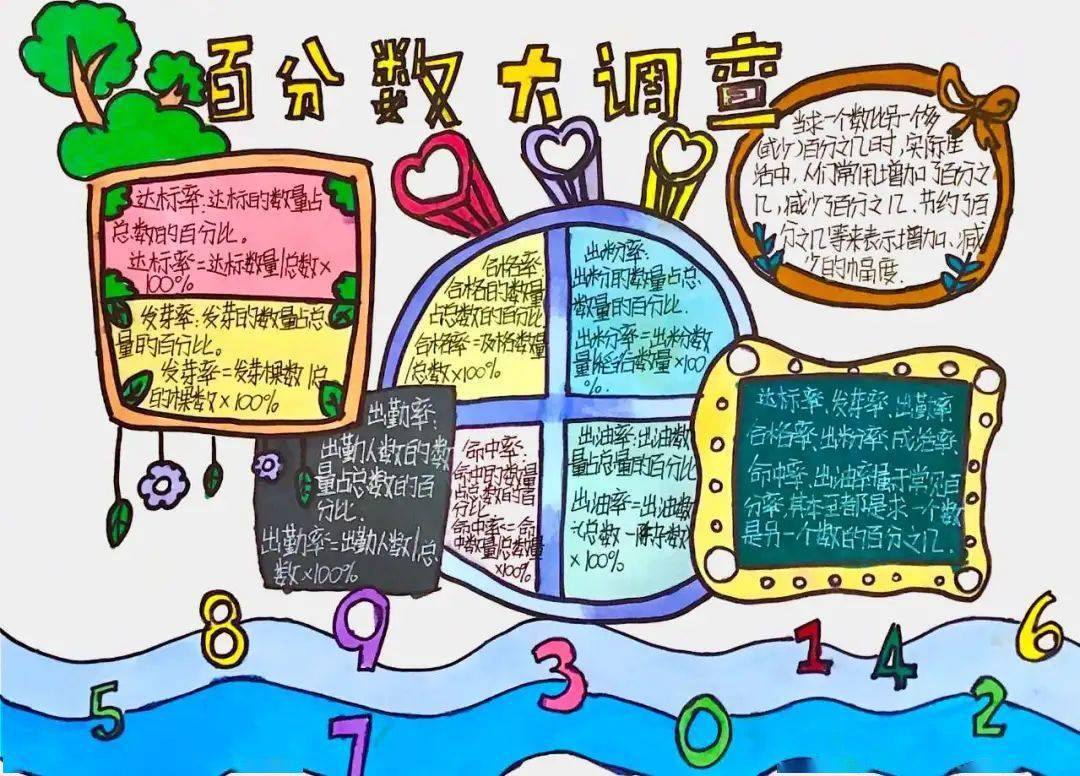 百分数大调查
达标率:达标的数量占
总数的百分比。
达标率=达标数量/总数×
100%
发芽率:发芽的数量占总
量的百分比。
发芽率=发芽棵数/总
的棵数×100%
合格率:
合格的数量
占总数的百分比
合格率=及格数量
/总数×100%
出粉率:
出粉的数量占总
数量的百分比.
出粉率=出粉数
量/总数量×100
%.
当求一个数比另一个多
(减少)百分之几时,实际生
活中,人们常用增加了百分之
几,减少了百分之几、节约了百
分之几等来表示增加、减
少的幅度.
出勤率:
出勤人数的数
量占总数的百
分比.
出勤率=出勤人数/总
数×100%
命中率:
命中的数量
占总数的百
分比
命中率=命
中数量/总数量
×100%
出油率:出油数
量占总量的百分比
出油率=出油数
×100%
达标率、发芽率、出勤率
合格率、出粉率、成活率、
命中率、出油率属于常见百
分率,其本 都是求一个数
是另一个数的百分之几.
8
9
3
1
4
6
5
7
0
2